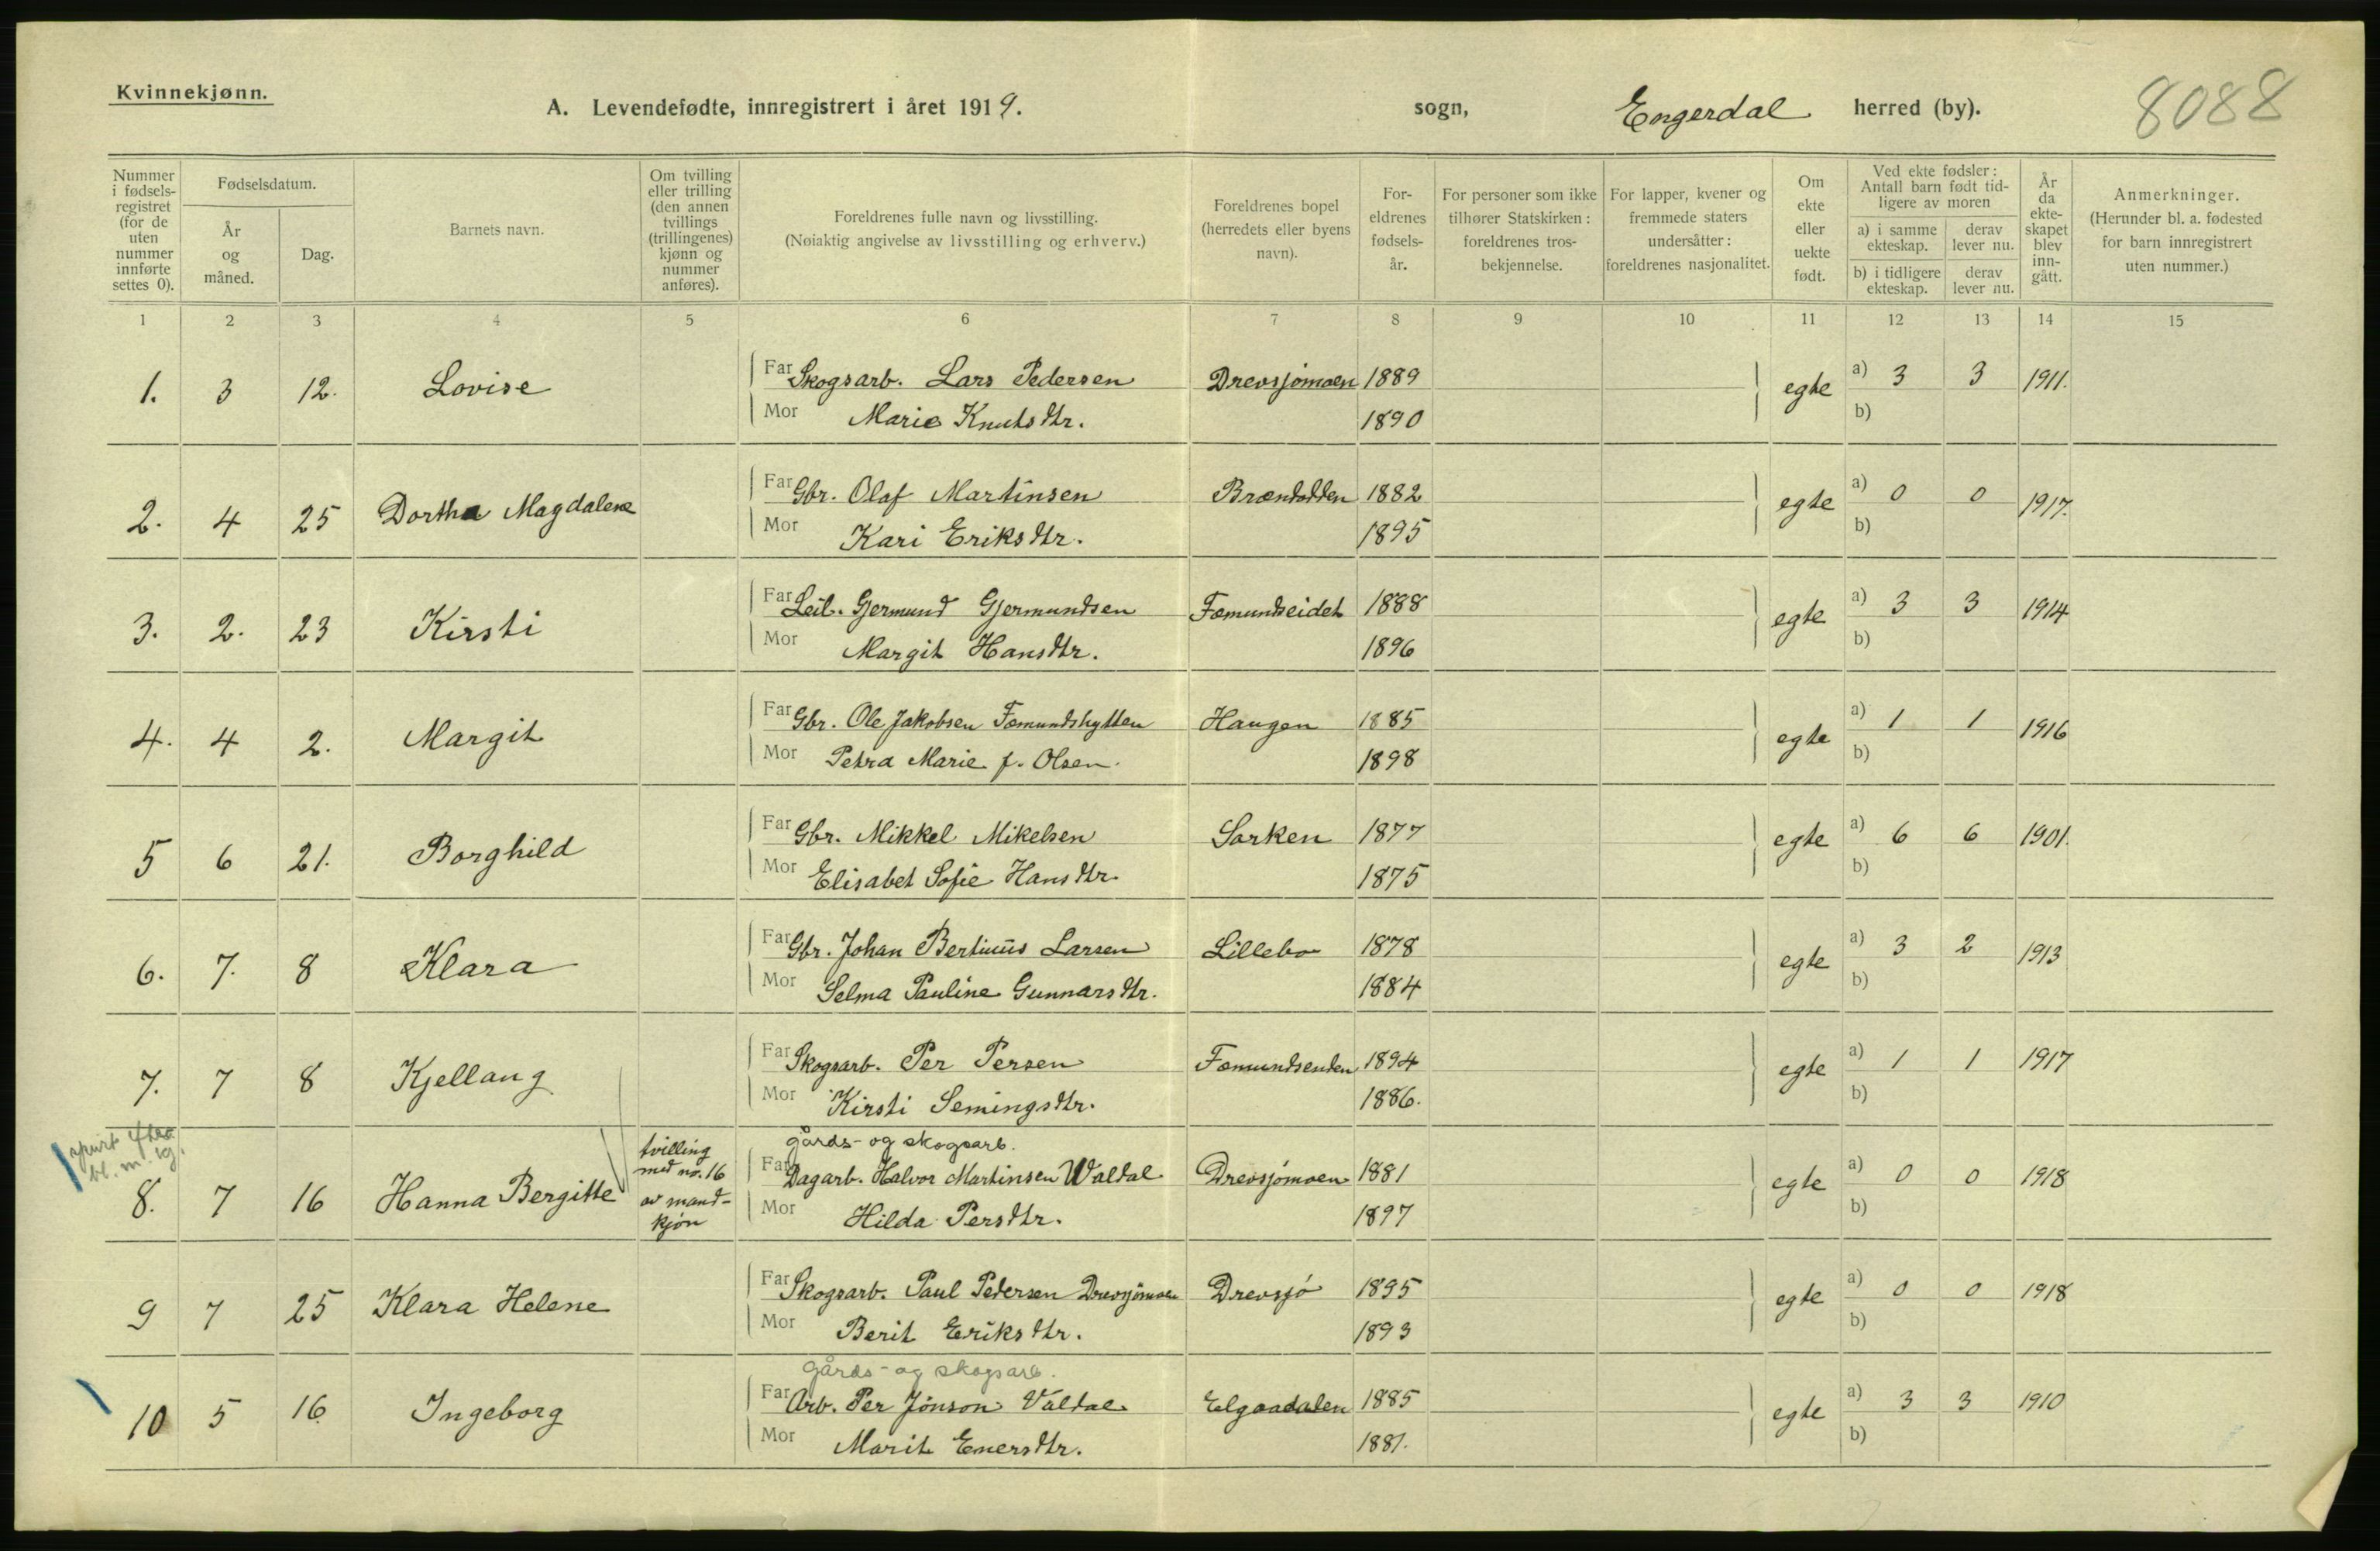 Kvinnekjønn.
A. Levendefødte, innregistrert i året 1919. sogn, Engerdal herred (by). 8088
Nummer i fødselsregistret (for de uten nummer innførte settes 0).
Fødselsdatum.
År og måned.
Dag.
Barnets navn.
Om tvilling eller trilling (den annen tvillings (trillingenes) kjønn og nummer anføres).
Foreldrenes fulle navn og livsstilling.
(Nøiaktig angivelse av livsstilling og erhverv.)
Foreldrenes bopel (herredets eller byens navn).
Foreldrenes fødselsår.
For personer som ikke tilhører Statskirken: foreldrenes trosbekjennelse.
For lapper, kvener og fremmede staters undersåtter: foreldrenes nasjonalitet.
Om ekte eller uekte født.
Ved ekte fødsler: Antall barn født tidligere av moren
a) i samme ekteskap. derav lever nu.
b) i tidligere ekteskap. derav lever nu.
År da ekteskapet blev inngått.
Anmerkninger.
(Herunder bl. a. fødested for barn innregistrert uten nummer.)
1 2 3 4 5 6 7 8 9 10 11 12 13 14 15
1. 3 12. Lovise Far Skogsarb. Lars Pedersen Drevsjømoen 1889 egte a) 3 3 1911.
Mor Marie Knutsdtr. 1890 b)
2. 4 25 Dorthea Magdalene Far Gbr. Olaf Martinsen Brændodden 1882 egte a) 0 0 1917.
Mor Kari Eriksdtr. 1895 b)
3. 2. 23 Kirsti Far Leil. Gjermund Gjermundsen Fæmundseidet 1888 egte a) 3 3 1914
Mor Margit Hansdtr. 1896 b)
4. 4 2. Margit Far Gbr. Ole Jakobsen Fæmundshytten Haugen 1885 egte a) 1 1 1916
Mor Petra Marie f. Olsen. 1898 b)
5 6 21. Borghild Far Gbr. Mikkel Mikelsen Sorken 1877 egte a) 6 6 1901.
Mor Elisabet Sofie Hansdtr. 1875 b)
6. 7. 8 Klara Far Gbr. Johan Bertinus Larsen Lillebo 1878 egte a) 3 2 1913
Mor Selma Pauline Gunnarsdtr. 1884 b)
7. 7 8 Kjellaug Far Skogsarb. Per Persen Fæmundsenden 1894 egte a) 1 1 1917
Mor Kirsti Semingsdtr. 1886. b)
gårds- og skogsarb.
8. 7 16 Hanna Bergitte tvilling med no. 16 av mandkjøn Far Dagarb. Halvor Martinsen Waldal Drevsjømoen 1881 egte a) 0 0 1918
Mor Hilda Persdtr. 1897 b)
9 7 25 Klara Helene Far Skogsarb. Paul Pedersen Drevsjømoen Drevsjø 1895 egte a) 0 0 1918
Mor Berit Eriksdtr. 1893 b)
gårds- og skogsarb.
10 5 16 Ingeborg Far Arb. Per Jónson Valdal Elgaadalen 1885 egte a) 3 3 1910
Mor Marit Enersdtr. 1881. b)